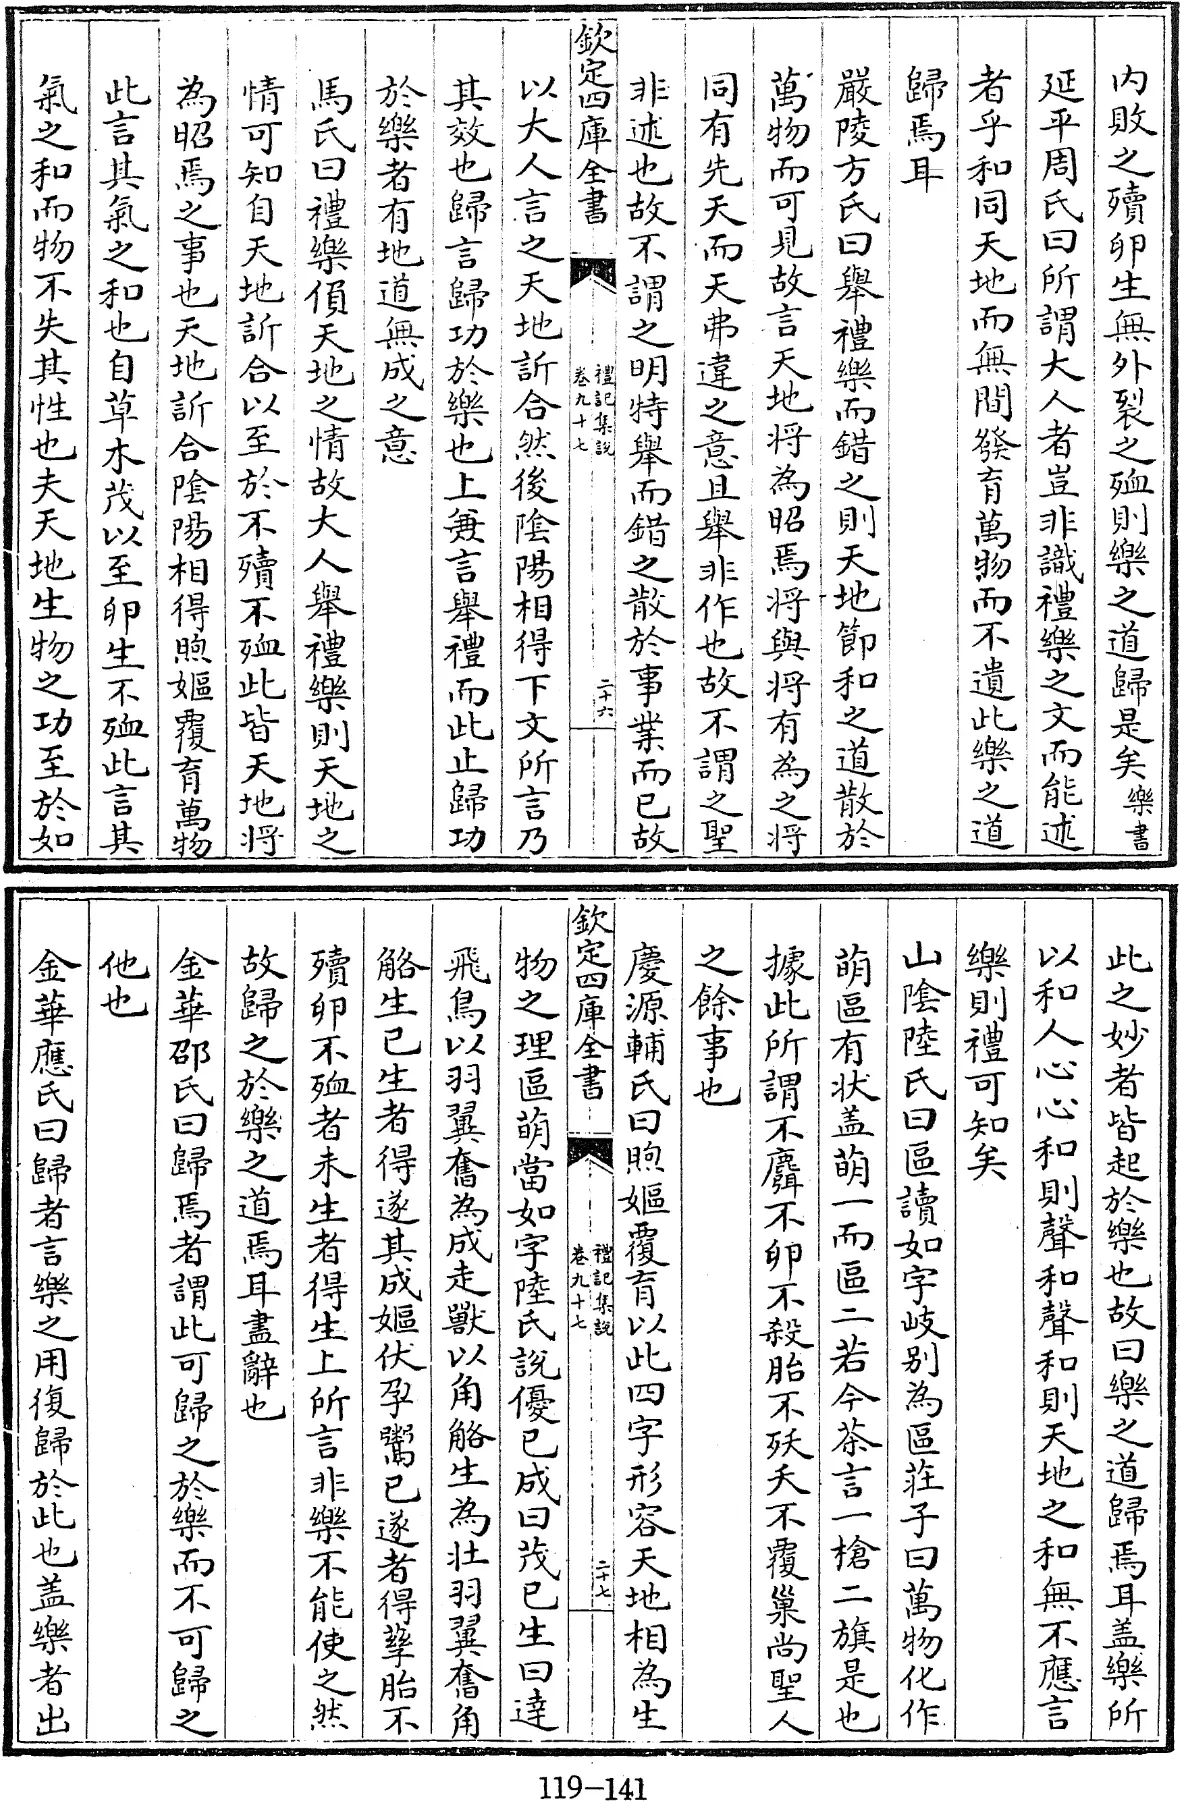 內敗之殰卵生無外裂之殈則樂之道歸是矣樂書
延平周氏曰所謂大人者豈非識禮樂之文而能述
者乎和同天地而無間發育萬物而不遺此樂之道
歸焉耳
嚴陵方氏曰舉禮樂而錯之則天地節和之道散於
萬物而可見故言天地將為昭焉將與將有為之將
同有先天而天弗違之意且舉非作也故不謂之聖
非述也故不謂之明特舉而錯之散於事業而已故
欽定四庫全書
禮記集說
卷九十七
二十六
以大人言之天地訢合然後陰陽相得下文所言乃
其效也歸言歸功於樂也上兼言舉禮而此止歸功
於樂者有地道無成之意
馬氏曰禮樂偩天地之情故大人舉禮樂則天地之
情可知自天地訢合以至於不殰不殈此皆天地將
為昭焉之事也天地訢合陰陽相得煦嫗覆育萬物
此言其氣之和也自草木茂以至卵生不殈此言其
氣之和而物不失其性也夫天地生物之功至於如
此之妙者皆起於樂也故曰樂之道歸焉耳盖樂所
以和人心心和則聲和聲和則天地之和無不應言
樂則禮可知矣
山陰陸氏曰區讀如字岐别為區莊子曰萬物化作
萌區有状盖萌一而區二若今茶言一槍二旗是也
據此所謂不麛不卵不殺胎不殀夭不覆巢尚聖人
之餘事也
慶源輔氏曰煦嫗覆育以此四字形容天地相為生
欽定四庫全書
禮記集說
卷九十七
二十七
物之理區萌當如字陸氏說優已成曰茂已生曰達
飛鳥以羽翼奮為成走獸以角觡生為壯羽翼奮角
觡生已生者得遂其成嫗伏孕鬻已遂者得孳胎不
殰卵不殈者未生者得生上所言非樂不能使之然
故歸之於樂之道焉耳盡辭也
金華邵氏曰歸焉者謂此可歸之於樂而不可歸之
他也
金華應氏曰歸者言樂之用復歸於此也盖樂者出
119-141